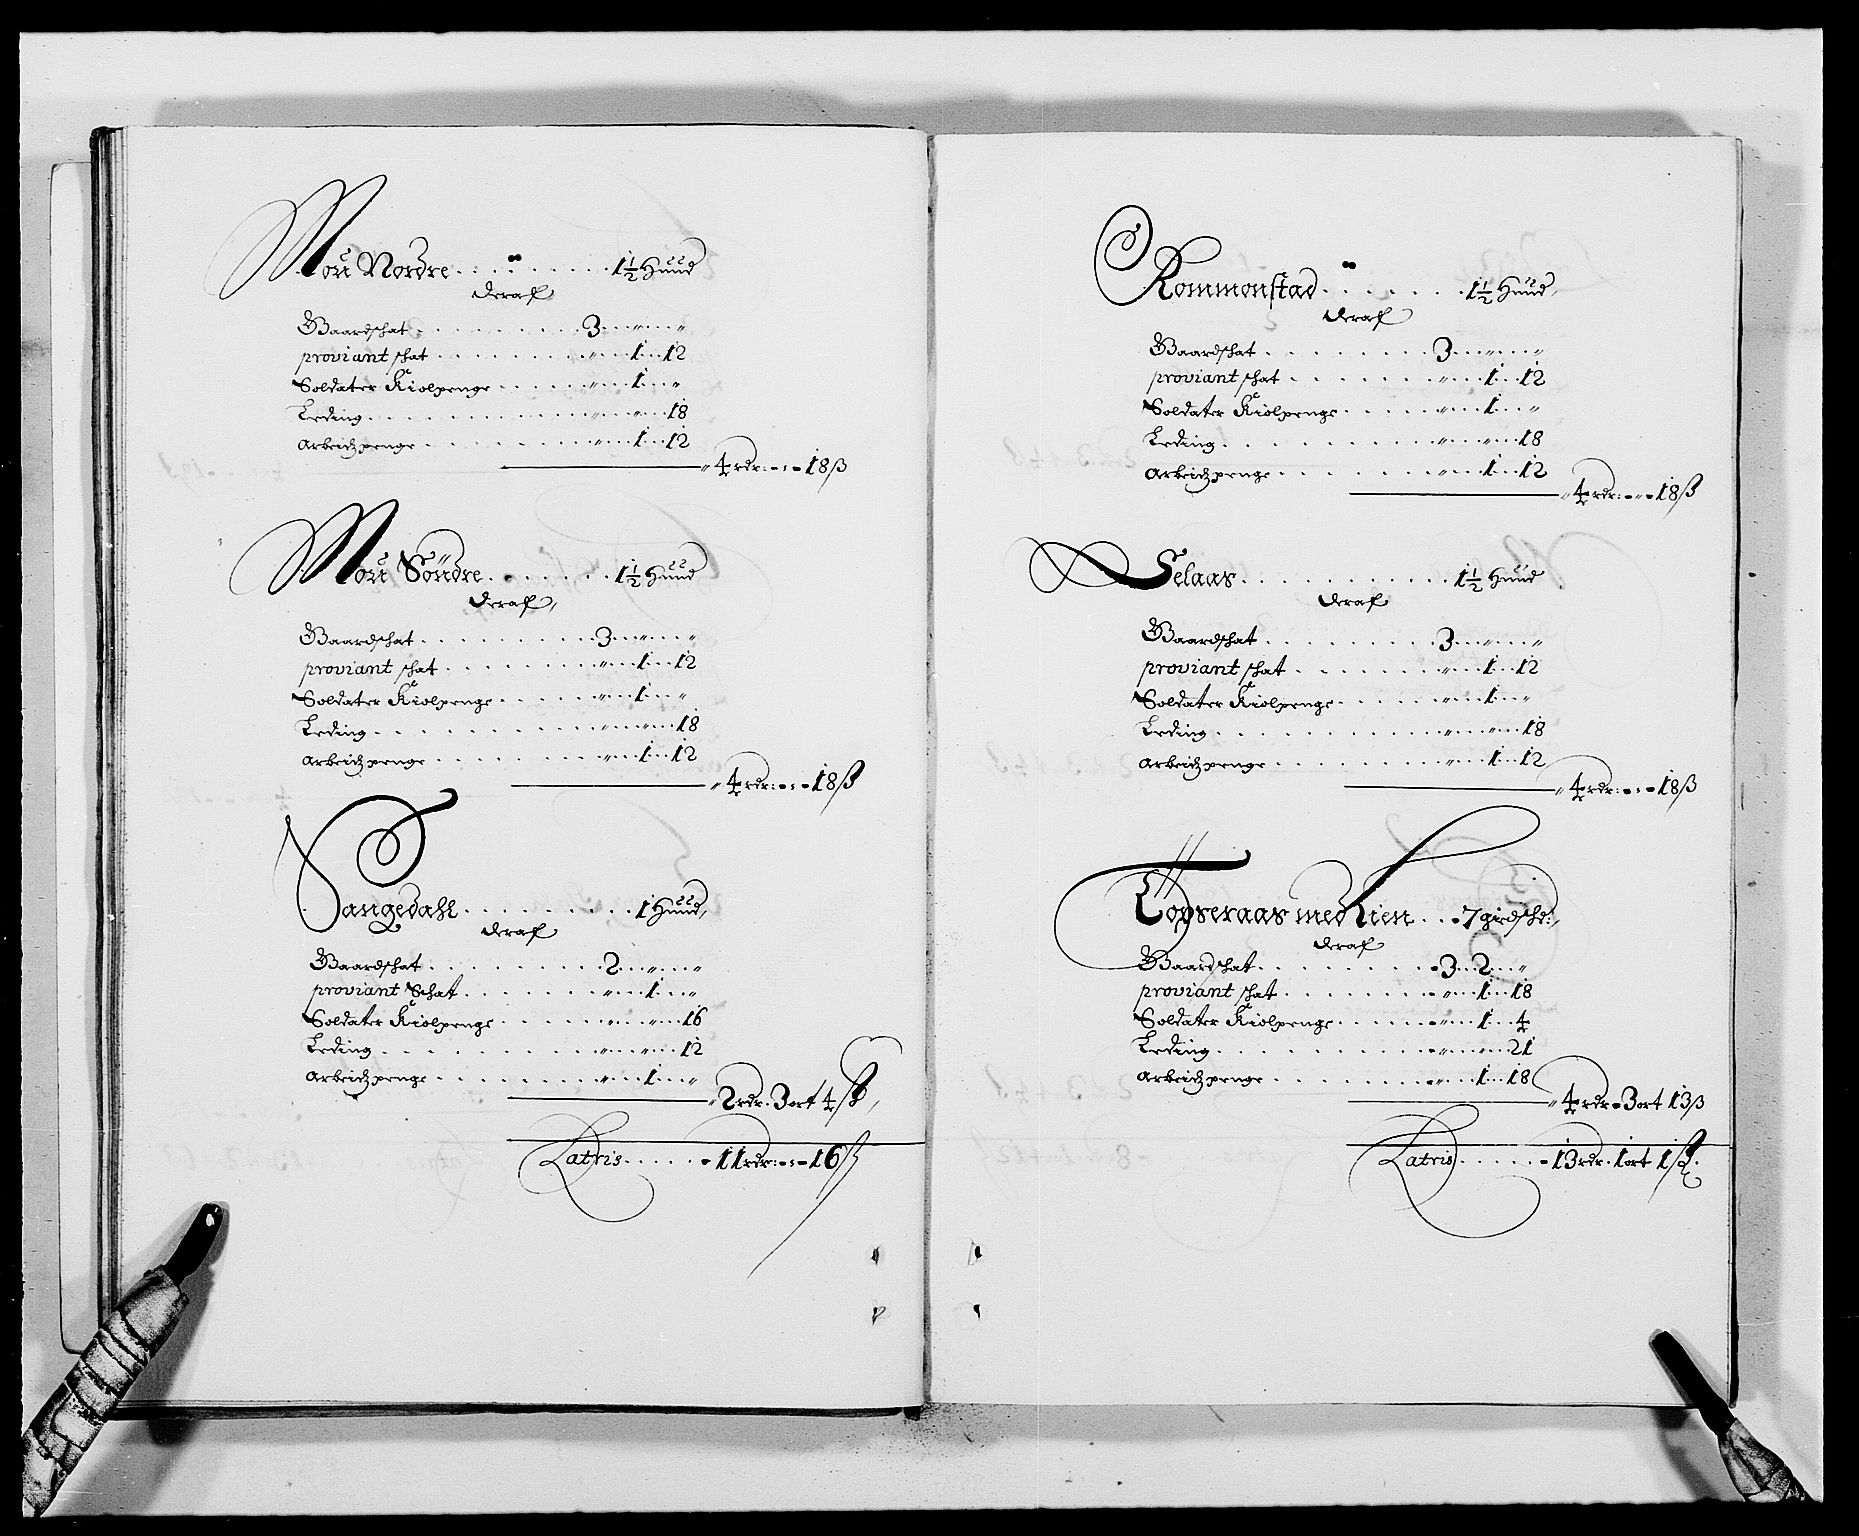 Moü Nordre . . . . . . . . . 1½ Huud
deraf
Gaardschat . . . . . . . . . 3 „ „
proviant schat . . . . . . . . „ 1 12
Soldater Kiolpenge . . . . . . „ 1 „
Leding . . . . . . . . . . . „ „ 18
Arbeidzpenge . . . . . . . . „ 1 12
4 rdr: - : - 18 ß
Moü Söndre . . . . . . . 1½ Huud
deraf
Gaardschat . . . . . . . . . 3 „ „
proviant schat . . . . . . . . „ 1 12
Soldater Kiolpenge . . . . . . „ 1 „
Leding . . . . . . . . . . . „ „ 18
Arbeidzpenge . . . . . . . . „ 1 12
4 rdr: - : - 18 ß
Vangedahl . . . . . . . . 1 Huud
deraf
Gaardschat . . . . . . . . . 2 „ „
proviant Schat . . . . . . . . „ 1 „
Soldater Kiolpenge . . . . . . „ „ 16
Leding . . . . . . . . . . . „ „ 12
Arbeidzpenge . . . . . . . . „ 1 „
2 rdr. 3 ort 4 ß
Latris . . . . . 11 rdr: - : - 16 ß
Rommonstad . . . . . . . 1½ Huud
deraf
Gaardschat . . . . . . . . . 3 „ „
proviant schat . . . . . . . . „ 1 12
Soldater Kiolpenge . . . . . . „ 1 „
Leding . . . . . . . . . . . „ „ 18
Arbeidzpenge . . . . . . . . „ 1 12
4 rdr: - „ - 18 ß
Selaas . . . . . . . . . . . 1½ Huud
deraf
Gaardschat . . . . . . . . . 3 „ „
proviant schat . . . . . . . . „ 1 12
Soldater Kiolpenge . . . . . . „ 1 „
Leding . . . . . . . . . . . „ „ 18
Arbeidzpenge . . . . . . . . „ 1 12
4 rdr: - : - 18 ß
Topseraas med Lien . . . 7 girdschd:
deraf
Gaardschat . . . . . . . . . 3 2 „
proviant schat . . . . . . . . „ 1 18
Soldater Kiolpenge . . . . . . „ 1 4
Leding . . . . . . . . . . . „ „ 21
Arbeidzpenge . . . . . . . . „ 1 18
4 rdr - 3 ort 13 ß
Latris . . . . . 13 rdr. 1 ort 1 ß.